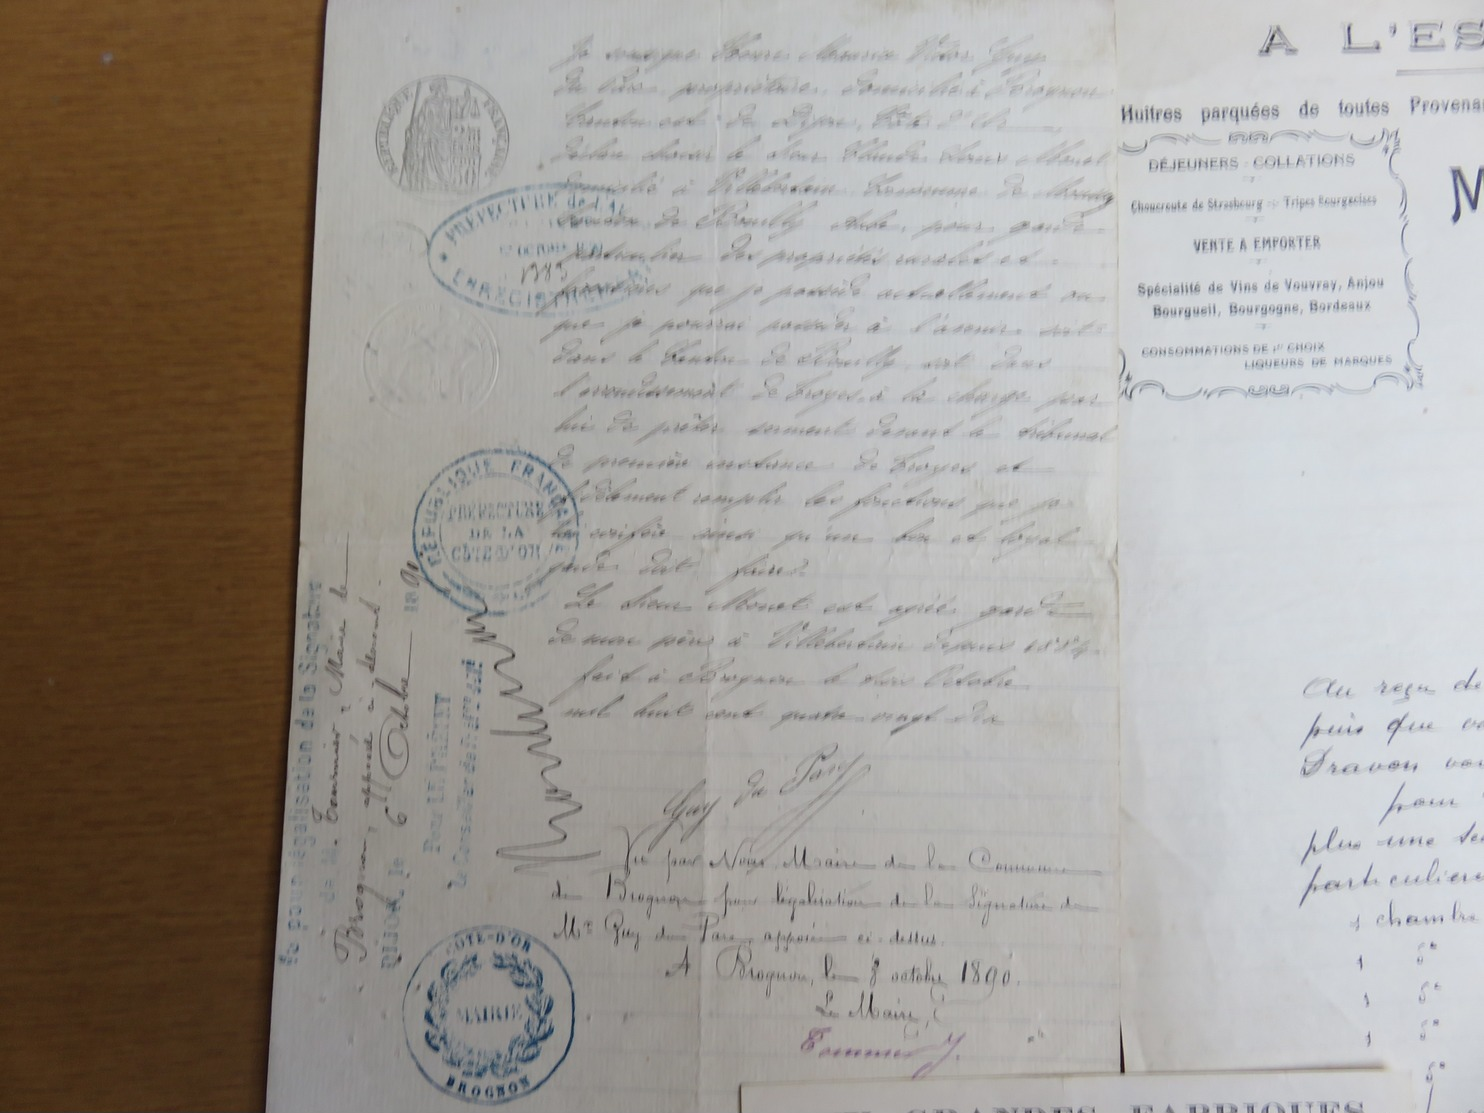 Je soussigné Maurice Victor Guy
du Parc propriétaire, domicilié à Brognon
Canton est de Dijon, Côte d'Or
déclare choisir le sieur Claude Monot
domicilié à Villebertin Commune de Moussey
canton de Bouilly Aube, pour garde
particulier des propriétés rurales et
forestières que je possède actuellement ou
que je pourrai posséder à l'avenir soit
dans le Canton de Bouilly soit dans
l'arrondissement de Troyes, à la charge par
lui de prêter serment devant le tribunal
de première instance de Troyes et
fidèlement remplir les fonctions que je
lui confère ainsi qu'un bon et loyal
garde doit faire.
Le sieur Monot est agréé garde
de mon père à Villebertin depuis
fait à Brognon le Octobre
mil huit cent quatre vingt dix
Guy du Parc
Vu par Nous Maire de la Commune
de Brognon pour légalisation de la Signature de
Mr Guy du Parc, apposée ci-dessus.
A Brognon, le 8 octobre 1890.
Le Maire,
RÉPUBLIQUE FRANÇAISE
PRÉFECTURE de l'
OCTOBRE
1383
ENREGISTREMENT
RÉPUBLIQUE FRANÇAISE
PRÉFECTURE
DE LA
CÔTE-D'OR
Vu pour légalisation de la Signature
de M. Maire de
Brognon, apposée ci-dessus
DIJON, le 6 Octobre 1890
Pour LE PRÉFET
Le Conseiller de Préfecture
CÔTE-D'OR
MAIRIE
BROGNON
A L'ES
Huîtres parquées de toutes Provenan
DÉJEUNERS - COLLATIONS
Choucroute de Strasbourg - Tripes Bourgeoises
VENTE A EMPORTER
Spécialité de Vins de Vouvray, Anjou
Bourgueil, Bourgogne, Bordeaux
CONSOMMATIONS DE 1er CHOIX
LIQUEURS DE MARQUES
M
Au reçu de
puis que vo
Dravon vou
pour
plus une se
particulier
1 chambre
1
1
1
GRANDES FABRIQUES